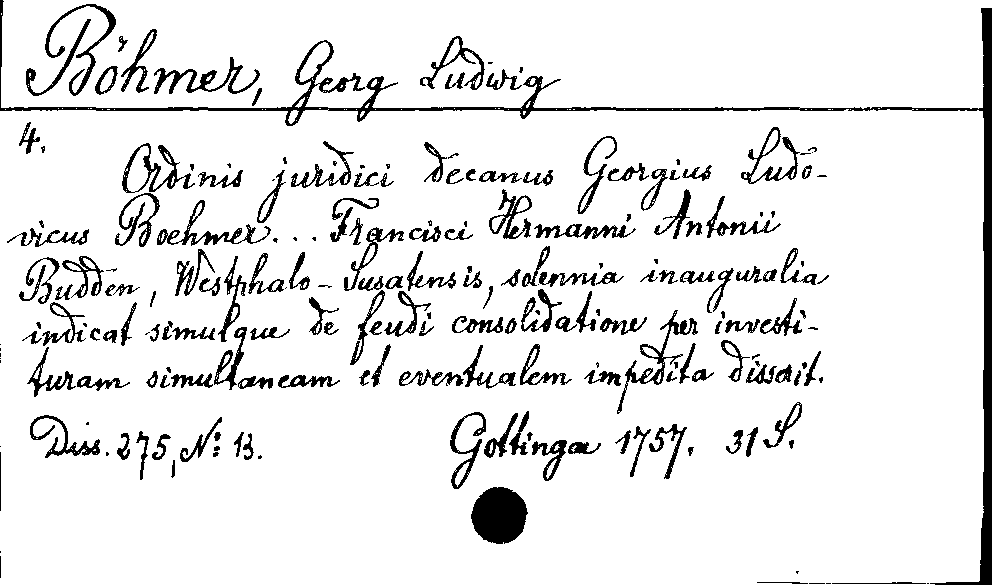 Böhmer, Georg Ludwig
4.
Ordinis juridici decanus Georgius Ludo-
vicus Boehmer... Francisci Hermanni Antonii
Budden, Westphalo-Susatensis, solennia inauguralia
indicat simulque de feudi consolidatione per investi-
turam simultaneam et eventualem impedita disserit.
Diss. 275, No: 13. Gottingae 1757. 31 S.